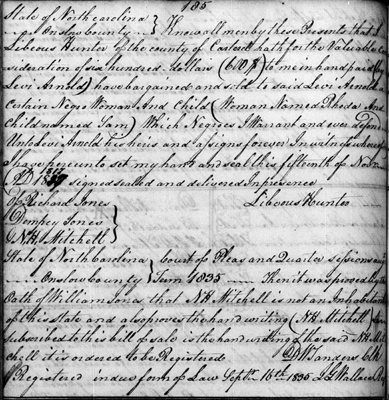 185
State of North Carolina
Onslow County } Know all men by these Presents that I
Lebeous Hunter of the County of Carteret hath for the Valuable
sideration of six hundred dollars (600$) to me in hand paid by
Levi Arnold) have bargained and sold to said Levi Arnold a
Certain Negro Woman And Child (Woman Named Rhoda And
Child named Sam) Which Negroes I Warrant and ever defend
Unto Levi Arnold his heirs and assigns forever In witness whereof
I have hereunto set my hand and seal this fifteenth of Novr
AD signed sealed and delivered In presence
Of Richard Jones Lebeous Hunter
Dempsey Jones
N.H. Mitchell
State of North Carolina } Court of Pleas and Quarter sessions
Onslow County } Term 1835 Then it was proved by the
Oath of William Jones that N.H. Mitchell is not an Inhabitant
of this State and also proves the hand writing (N.H. Mitchell
subscribed to this bill of sale is the hand writing of the said N.H. Mit
chell it is ordered to be Registered D.W. Sanders Clk
Registered in due form of Law Septr 16th 1835 L.G. Wallace